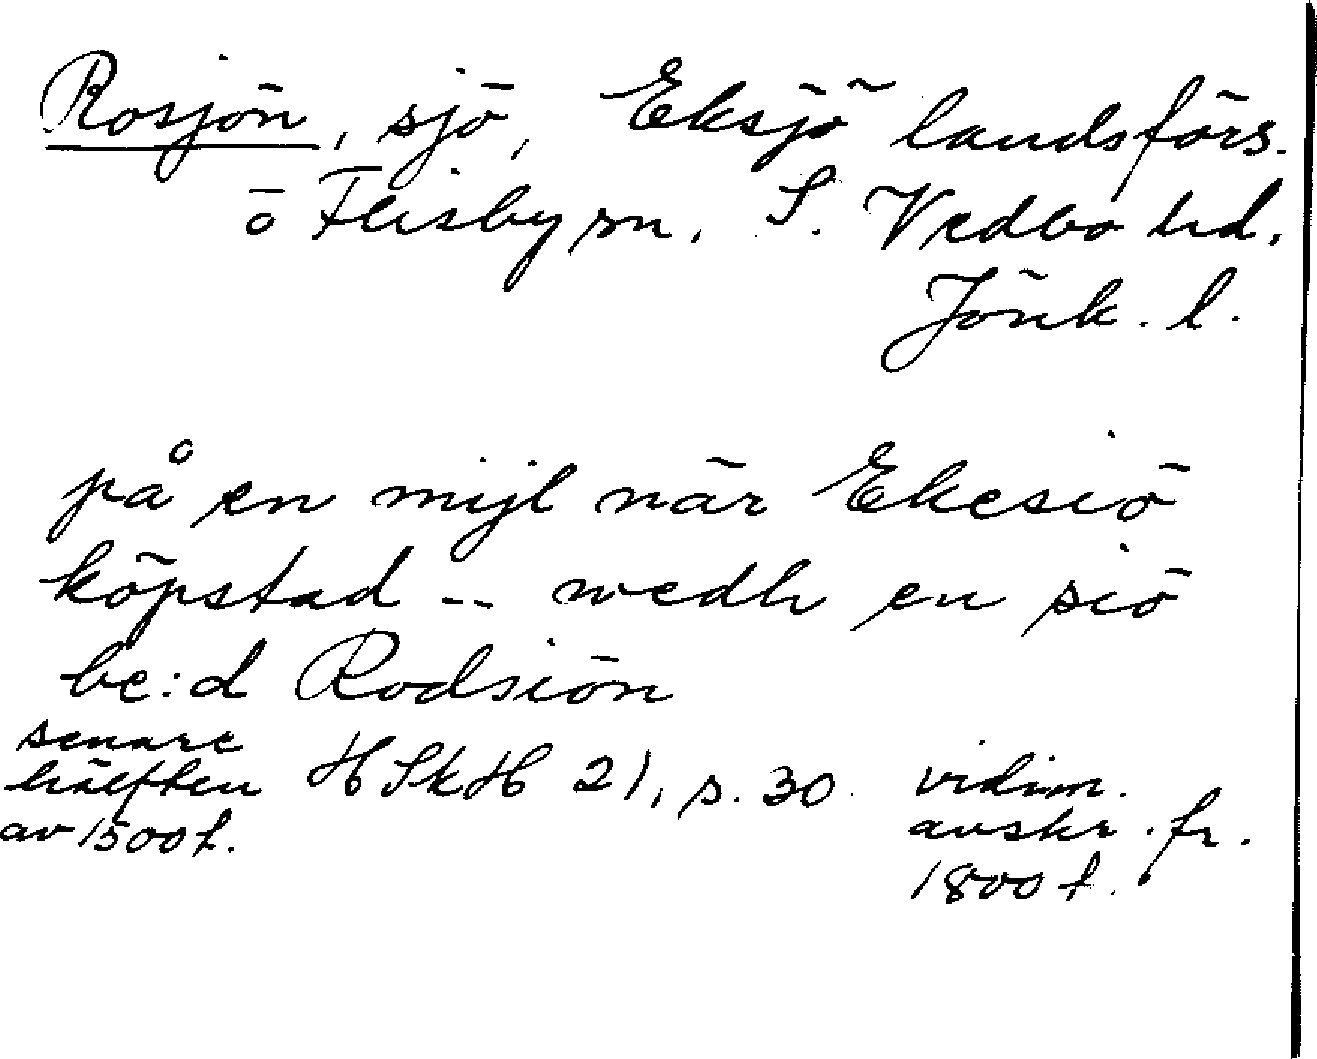 Rosjön, sjö, Eksjö landsförs.
o Flisby sn. S. Vedbo hd.
Jönk. l.
på en mijl när Ekesiö
köpstad -- medh en siö
be:d Rodsiön
senare
hälften HSkH 21, s. 30 vidim.
av 1500 t. avskr. fr.
1800 t.